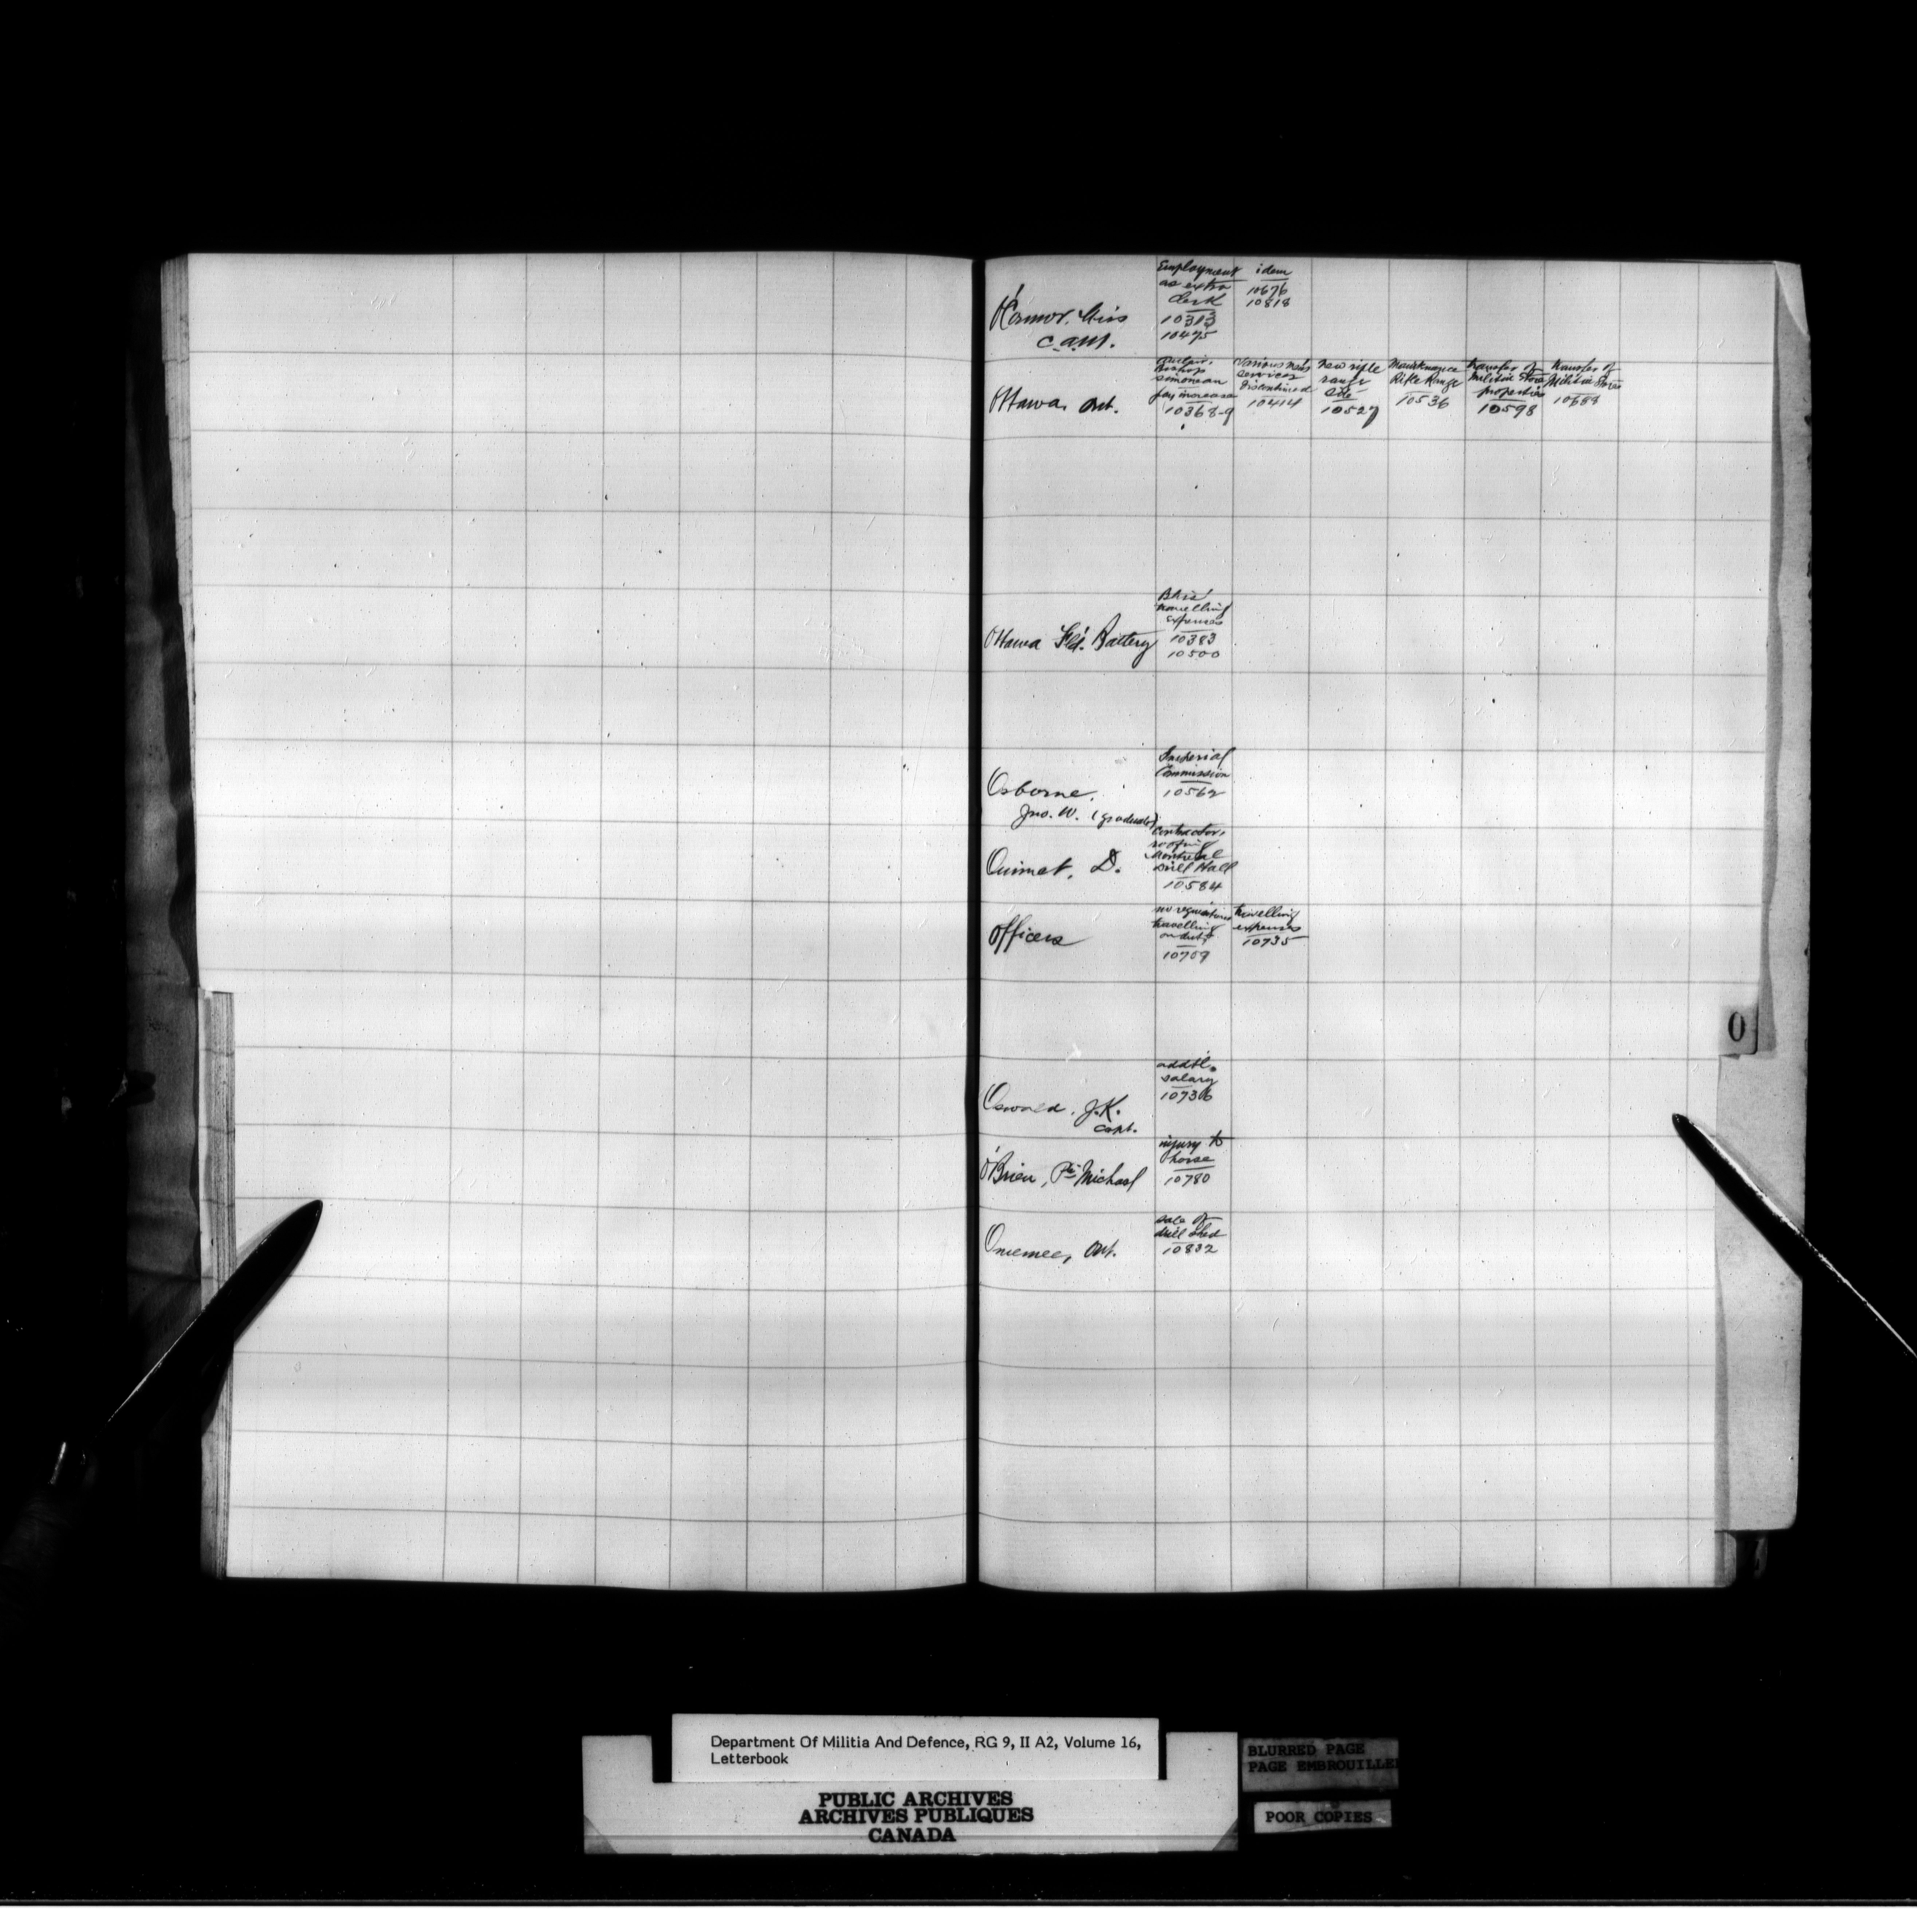 O'Connor, Miss
C.A.M.
Employment
as extra
Clerk
10313
10475
idem
10676
10818
Ottawa, Ont.
Bishop
Simoneau
pay increase
10368-9
Various
services
discontinued
10414
New rifle
range
site
10527
Maintenance
Rifle Range
10536
transfer of
Militia Store
properties
10598
transfer of
Militia Stores
10688
Ottawa Fld. Battery
travelling
expenses
10383
10500
Osborne,
Jno. W. (graduate)
Imperial
Commission
10562
Ouimet, D.
contractor,
roofing
Montreal
Drill Hall
10584
Officers
no requisitions
travelling
on duty
10709
travelling
expenses
10735
Oswald, J.K.
Capt.
addtl.
salary
10736
O'Brien, Pte Michael
injury to
horse
10780
Omemee, Ont.
sale of
drill shed
10832
O
Department Of Militia And Defence, RG 9, II A2, Volume 16,
Letterbook
PUBLIC ARCHIVES
ARCHIVES PUBLIQUES
CANADA
BLURRED PAGE
PAGE EMBROUILLE
POOR COPIES